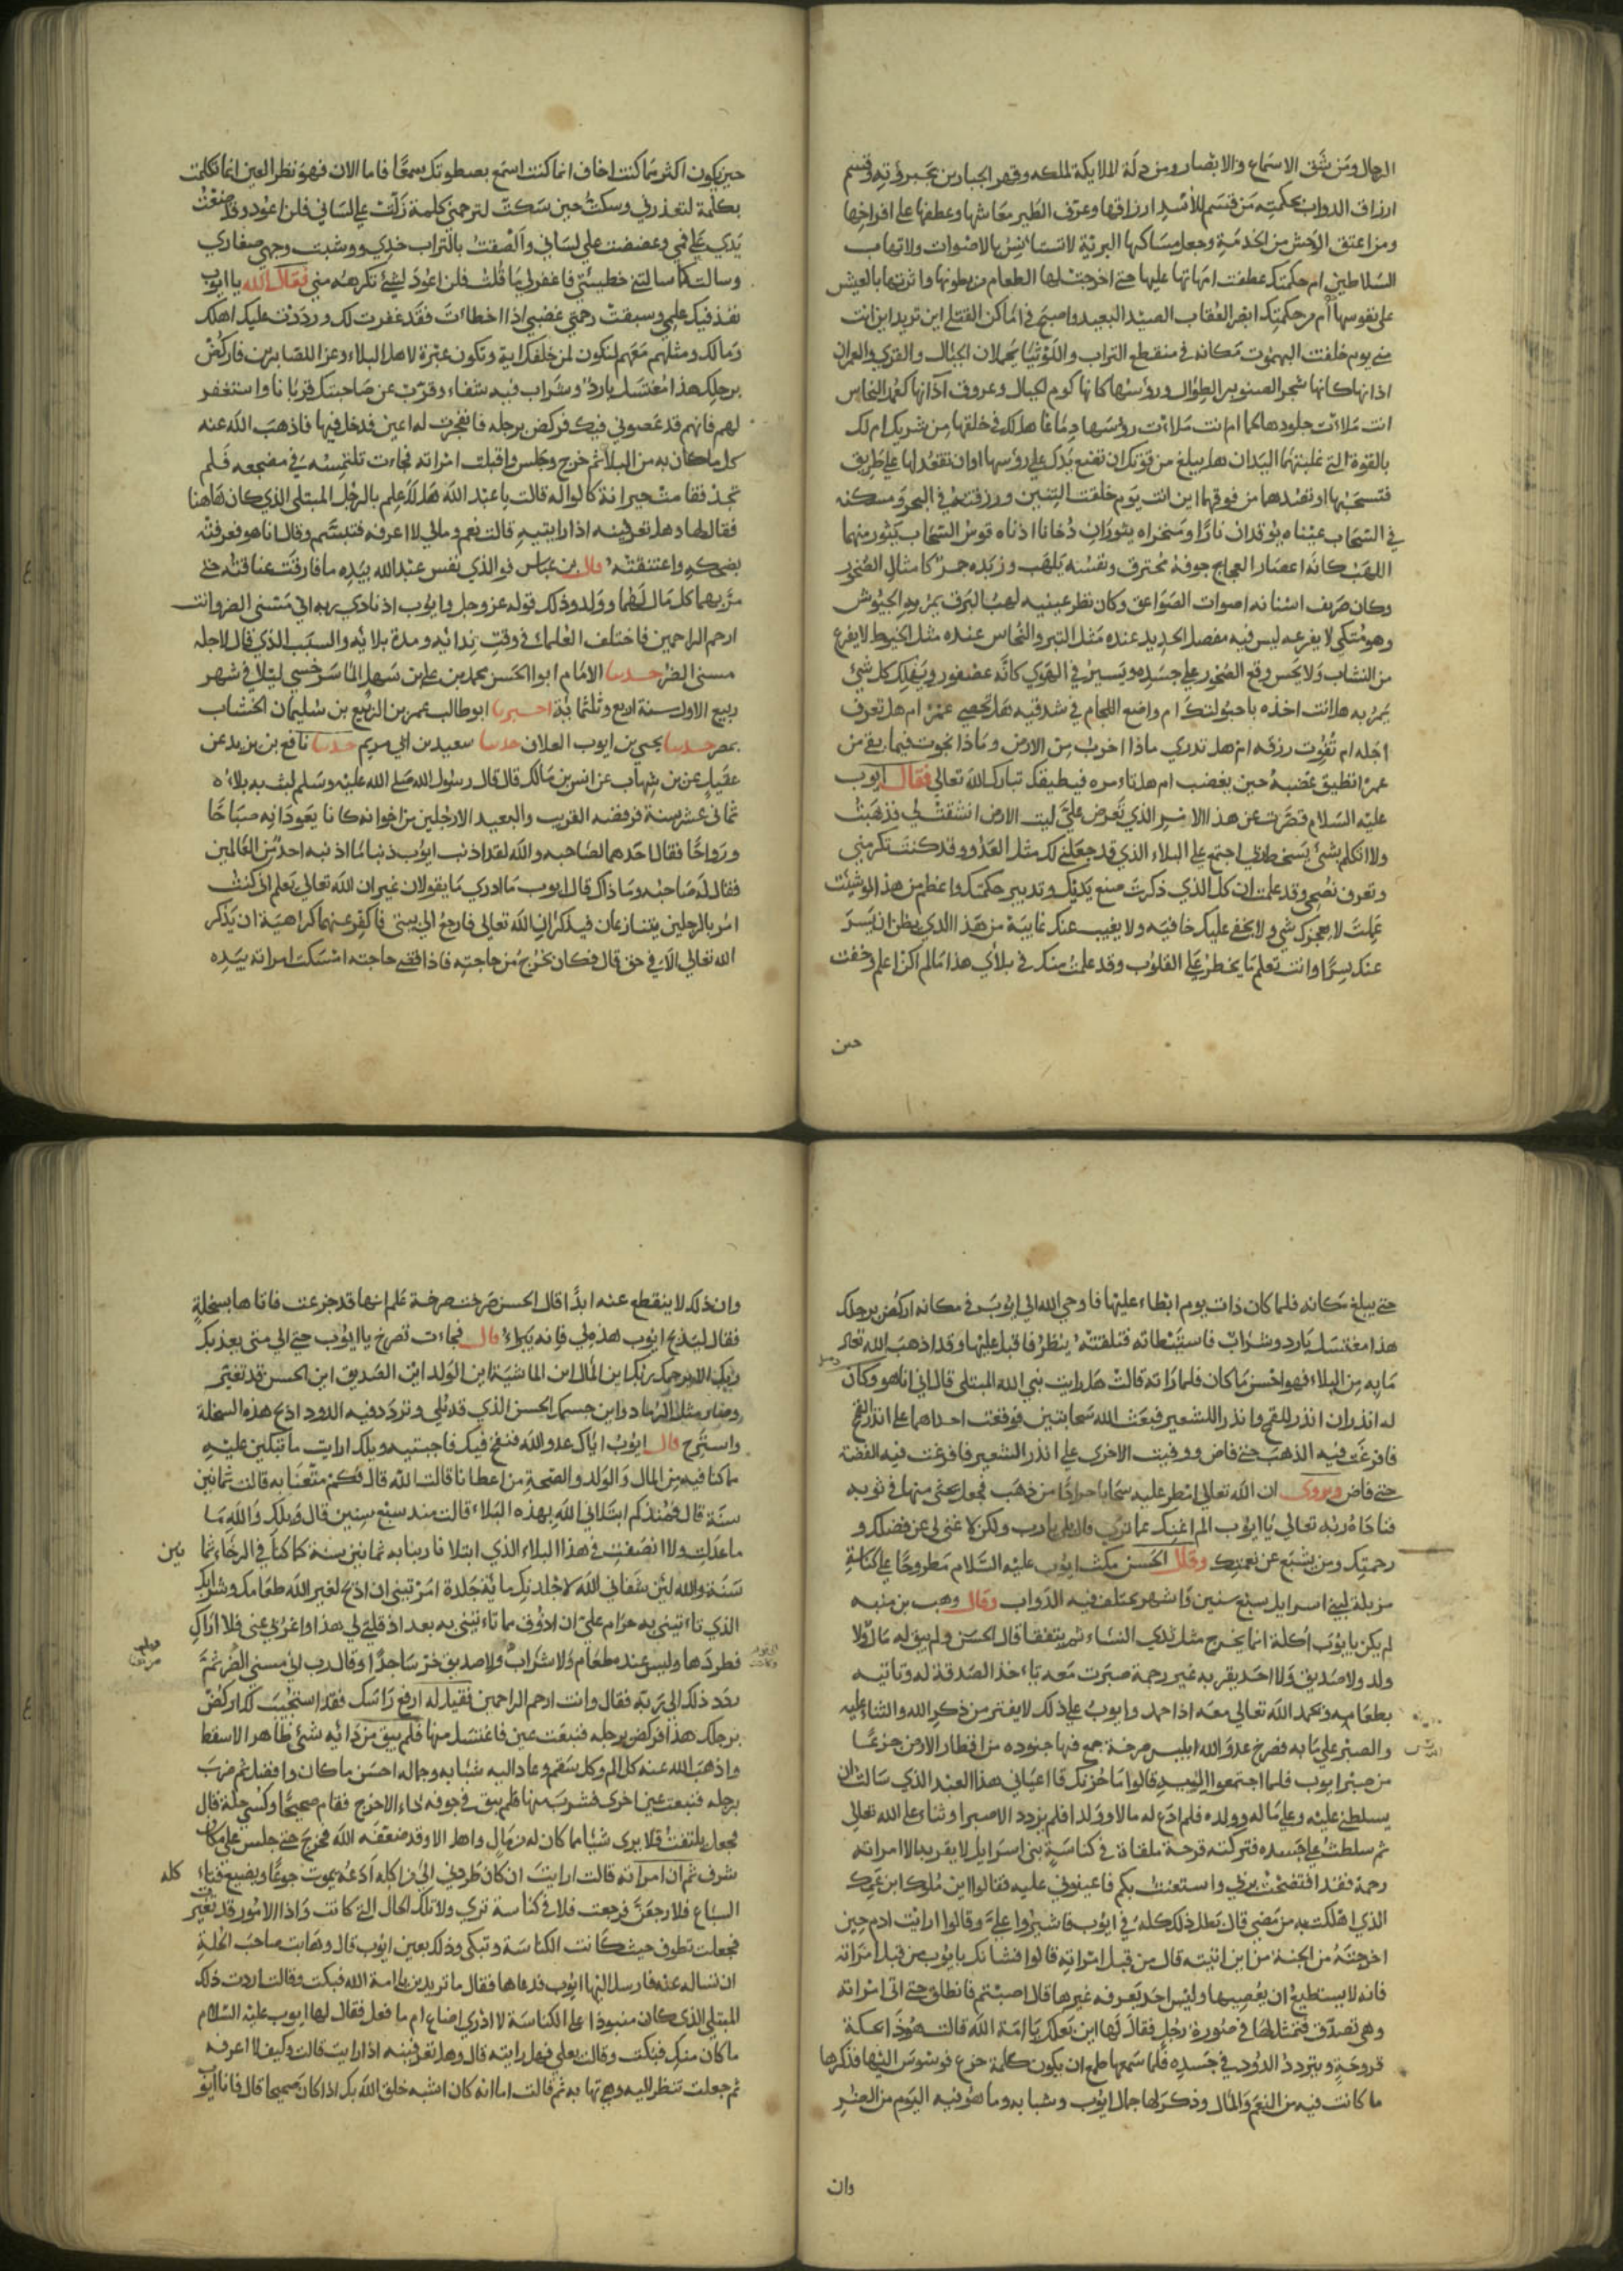 الرجال ومن شق الاسماع والابصار ومن دلة الملايكة لملكه وقهر الجبارين بجبروته وقسم
ارزاق الدواب بحكمته من قسم للاسد ارزاقها وعرف الطير معاشها وعطفها على افراخها
ومن اعتق الوحش من الخدمة وجعل مساكنها البرية لا تستانس بالاصوات ولا تهاب
السلاطين ام حكمتك عطفت امهاتها عليها حتى اخرجت لها الطعام من بطونها واثرتها بالعيش
على نفوسها ام من حكمتك ابصر العقاب الصيد البعيد واصبح في اماكن القتلى اين تريد اين انت
مني يوم خلقت البهموت مكانه في منقطع التراب واللوثيا يحملان الجبال والقرى والعمران
اذانها كانها شجر الصنوبر الطوال ورؤسها كانها كوم الجبال وعروق آذانها كعمد النحاس
انت ملأت جلودها لحما ام انت ملأت رؤسها دماغا هل لك في خلقها من شريك ام لك
بالقوة التي غلبتهما اليدان هل يبلغ من قوتك ان تضع يدك على رؤسها او ان تقعد لها على طريق
فتسجنها او تصدها من قوتها اين انت يوم خلقت التنين ورزقته في البحر ومسكنه
في السحاب عيناه توقدان نارا ومنخراه يثوران دخانا اذناه قوس السحاب يثور منهما
اللهب كانه اعصار العجاج جوفه محترق ونفسه يلهب وزبده جمر كامثال الصخور
وكان صريف اسنانه اصوات الصواعق وكان نظر عينيه لهب البرق تمر به الجيوش
وهو متكي لا يفزعه ليس فيه مفصل الحديد عنده مثل التبر والنحاس عنده مثل الخيوط لا يفزع
من النشاب ولا يحس وقع الصخور على جسده ويسير في الهوى كانه عصفور ويهلك كل شئ
يمر به هل انت اخذه باحبولتك ام واضع اللجام في شدقيه هل تحصي عمره ام هل تعرف
اجله ام تفوت رزقه ام هل تدري ماذا اخرب من الارض وماذا يخرب فيما بقي من
عمره اتطيق غضبه حين يغضب ام هل تامره فيطيعك تبارك الله تعالى فقال ايوب
عليه السلام قصرت عن هذا الامر الذي تعرض علي ليت الارض انشقت لي فذهبت
ولا اتكلم بشئ يسخط ربي اجتمع علي البلاء الذي قد جعلني لك مثل العدو وقد كنت تكرمني
وتعرف نصحي وقد علمت ان كل الذي ذكرت صنع يديك وتدبير حكمتك واعظم من هذا لو شئت
عملت لا يعجزك شي ولا يخفى عليك خافيه ولا يغيب عنك غايبة من هذا الذي يظن ان يسر
عنك سرا وانت تعلم ما يخطر على القلوب وقد علمت منك في بلائي هذا ما لم اكن اعلم وخفت
حين
حين يكون اكثر مما كنت اخاف انما كنت اسمع بصطوتك سمعا فاما الان فهو نظر العين انما تكلمت
بكلمة لتعذرني وسكت حين سكت لترحمني كلمة زلت على لساني فلن اعود وقد وضعت
يدي على فمي وعضضت على لساني والصقت بالتراب خدي ووشبت وجهي صغاري
وسالت كاسالتني خطيئتي فاغفر لي ما قلت فلن اعود لشئ تكرهه مني فقال الله يا ايوب
نفذ فيك علمي وسبقت رحمتي غضبي اذا اخطات فقد غفرت لك ورددت عليك اهلك
ومالك ومثلهم معهم لتكون لمن خلفك اية وتكون عبرة لاهل البلاء وعز اللصابرين فاركض
برجلك هذا مغتسل بارد وشراب فيه شفاء وقرب عن صاحبتك قربانا واستغفر
لهم فانهم قد عصوني فيك فركض برجله فانفجرت له عين فدخل فيها فاذهب الله عنه
كل ما كان به من البلاء ثم خرج وجلس واقبلت امراته فجاءت تلتمسه في مضجعه فلم
تجده فقامت حيرانة كالواله قالت يا عبد الله هل لك علم بالرجل المبتلى الذي كان هاهنا
فقال لها وهل تعرفينه اذا رايتيه قالت نعم ومالي لا اعرفه فتبسم وقال انا هو فعرفته
بضحكه واعتنقته قال بن عباس فوالذي نفس عبد الله بيده ما فارقت عناقته حتى
مر بهما كل مال لهما وولد وذلك قوله عز وجل وايوب اذ نادى ربه اني مسني الضر وانت
ارحم الراحمين فاختلف العلماء في وقت ندائه ومدة بلائه والسبب الذي قال لاجله
مسني الضر حدثنا الامام ابوالحسن محمد بن علي بن سهل الماسرخسي ليلا في شهر
ربيع الاول سنة اربع وثلثماية اخبرنا ابو طالب عمر بن الربيع بن سليمان الخشاب
بمصر حدثنا يحيى بن ايوب العلان حدثنا سعيد بن ابي مريم حدثنا نافع بن يزيد عن
عقيل عن بن شهاب عن انس بن مالك قال قال رسول الله صلى الله عليه وسلم لبث به بلاءه
ثماني عشر سنة فرفضه القريب والبعيد الا رجلين من اخوانه كانا يعودانه صباحا
ورواحا فقال احدهما لصاحبه والله لقد اذنب ايوب ذنبا ما اذنبه احد من العالمين
فقال له صاحبه وما ذاك قال ايوب ما ادري ما يقولان غير ان الله تعالى يعلم اني كنت
امر بالرجلين يتنازعان فيذكران الله تعالى فارجع الى بيتي فاكفر عنهما كراهية ان يذكر
الله تعالى الا في حق قال فكان يخرج من حاجته فاذا قضى حاجته امسكت امراته بيده
حتى يبلغ مكانه فلما كان ذات يوم ابطاء عليها فاوحى الله الى ايوب في مكانه اركض برجلك
هذا مغتسل بارد وشراب فاستبطاته فتلقته ينظر فاقبل عليها وقد اذهب الله تعالى
ما به من البلاء فهو احسن ما كان فلما راته قالت هل رايت نبي الله المبتلى قال اني انا هو وكان
له اندران اندر للقمح واندر للشعير فبعث الله سحابتين فوقعت احداهما على اندر القمح
فافرغت فيه الذهب حتى فاض ووقيت الاخرى على اندر الشعير فافرغت فيه الفضة
حتى فاض ويروى ان الله تعالى امطر عليه سحابا جرادا من ذهب فجعل يحثي منها في ثوبه
فناداه ربه تعالى يا ايوب الم اغنيك عما ترى قال بلى يا رب ولكن لا غنى لي عن فضلك و
رحمتك ومن يشبع عن نعمتك وقال الحسن مكث ايوب عليه السلام مطروحا على كناسة
مزبلة لبني اسرايل سبع سنين واشهر يختلف فيه الدواب وقال وهب بن منبه
لم يكن بايوب اكلة انما يخرج مثل ثدي النساء ثم يتفقا قال الحسن ولم يبق له مال ولا
ولد ولا صديق ولا احد يقربه غير رحمة صبرت معه تاخذ الصدقة له وتاتيه
بطعامه وتحمد الله تعالى معه اذا حمد وايوب على ذلك لا يفتر من ذكر الله والثناء عليه
والصبر على ما به فصرخ عدو الله ابليس صرخة جمع فيها جنوده من اقطار الارض جزعا
من صبر ايوب فلما اجتمعوا اليه قالوا ما حزنك قال اعياني هذا العبد الذي سالت ان
يسلطني عليه وعلى ماله وولده فلم ادع له مالا وولدا فلم يزدد الا صبرا وثناء على الله تعالى
ثم سلطت على جسده فتركته قرحة ملقاة في كناسة بني اسرايل لا يقربه الا امراته
رحمة فقد افتضحت بربي واستعنت بكم فاعينوني عليه فقالوا اين ملوك ابن عمك
الذي اهلكت به من مضى قال بطل ذلك كله في ايوب فاشيروا علي وقالوا ارايت ادم حين
اخرجته من الجنة من اين اتيته قال من قبل امراته قالوا فشانك بايوب من قبل امراته
فانه لا يستطيع ان يعصيها وليس احد يعرفه غيرها قال اصبتم فانطلق حتى اتى امراته
وهي تصدق فتمثل لها في صورة رجل فقال لها اين بعلك يا امة الله قالت هوذا يحك
قروحه ويتردد الدود في جسده فلما سمعها طمع ان يكون كلمة جزع فوسوس اليها فذكرها
ما كانت فيه من النعم والمال وذكر لها جمال ايوب وشبابه وما هو فيه اليوم من الضر
وان
وان ذلك لا ينقطع عنه ابدا قال الحسن صرخت صرخة علم انها قد جزعت فاتاها بسخلة
فقال ليذبح ايوب هذه لي فانه يبراء قال فجاءت تصرخ يا ايوب حتى الى متى يعذبك
ربك الا يرحمك ربك اين المال اين الماشية اين الولد اين الصديق اين الحسن قد تغير
وصار مثل الرماد واين جسمك الحسن الذي قد بلي وتردد فيه الدود اذبح هذه السخلة
واسترح قال ايوب اتاك عدو الله فنفخ فيك فاجبتيه ويلك ارايت ما تبكين عليه
ما كنا فيه من المال والولد والصحة من اعطانا قالت الله قال فكم متعنا به قالت ثمانين
سنة قال فمنذ كم ابتلاني الله بهذه البلاء قالت منذ سبع سنين قال ويلك والله ما
ما عدلت ولا انصفت في هذا البلاء الذي ابتلانا ربنا به ثمانين سنة كما كنا في الرخاء ثما
نين
سنة والله لئن شفاني الله لاجلدنك مائة جلدة امرتيني ان اذبح لغير الله طعامك وشرابك
الذي تاتيني به حرام علي ان اذوق مما تاتيني به بعد اذ قلتي لي هذا واغربي عني فلا اراك
فطردها وليس عنده طعام ولا شراب ولا صديق خر ساجدا وقال رب اني مسني الضر ثم
ردد ذلك الى ربه فقال وانت ارحم الراحمين فقيل له ارفع راسك فقد استجبت لك اركض
برجلك هذا فركض برجله فنبعت عين فاغتسل منها فلم يبق من دائه شئ ظاهر الا سقط
واذهب الله عنه كل الم وكل سقم وعاد اليه شبابه وجماله احسن ما كان وافضل ثم ضرب
برجله فنبعت عين اخرى فشرب منها فلم يبق في جوفه داء الا خرج فقام صحيحا وكسي حلة قال
فجعل يلتفت فلا يرى شيئا مما كان له من مال واهل الا وقد ضعفه الله فخرج حتى جلس على مكان
شرف ثم ان امراته قالت ارايت ان كان طردني الى من اكله ادعه يموت جوعا ويضيع فتاء
كله
السباع فلارجعن فرجعت فلا في كناسة ترى ولا تلك الحال التي كانت واذا الامور قد تغيرت
فجعلت تطوف حيث كانت الكناسة وتبكي وذلك بعين ايوب قال وهابت صاحب الحلة
ان تساله عنه فارسل اليها ايوب فدعاها فقال ما تريدين يا امة الله فبكت وقالت اردت ذلك
المبتلى الذي كان منبوذا على الكناسة لا ادري اضاع ام ما فعل فقال لها ايوب عليه السلام
ما كان منك فبكت وقالت بعلي فهل رايته قال وهل تعرفينه اذا رايت قالت وكيف لا اعرفه
ثم جعلت تنظر اليه وهي تهابه ثم قالت اما انه كان اشبه خلق الله بك اذا كان صحيحا قال فانا ايوب